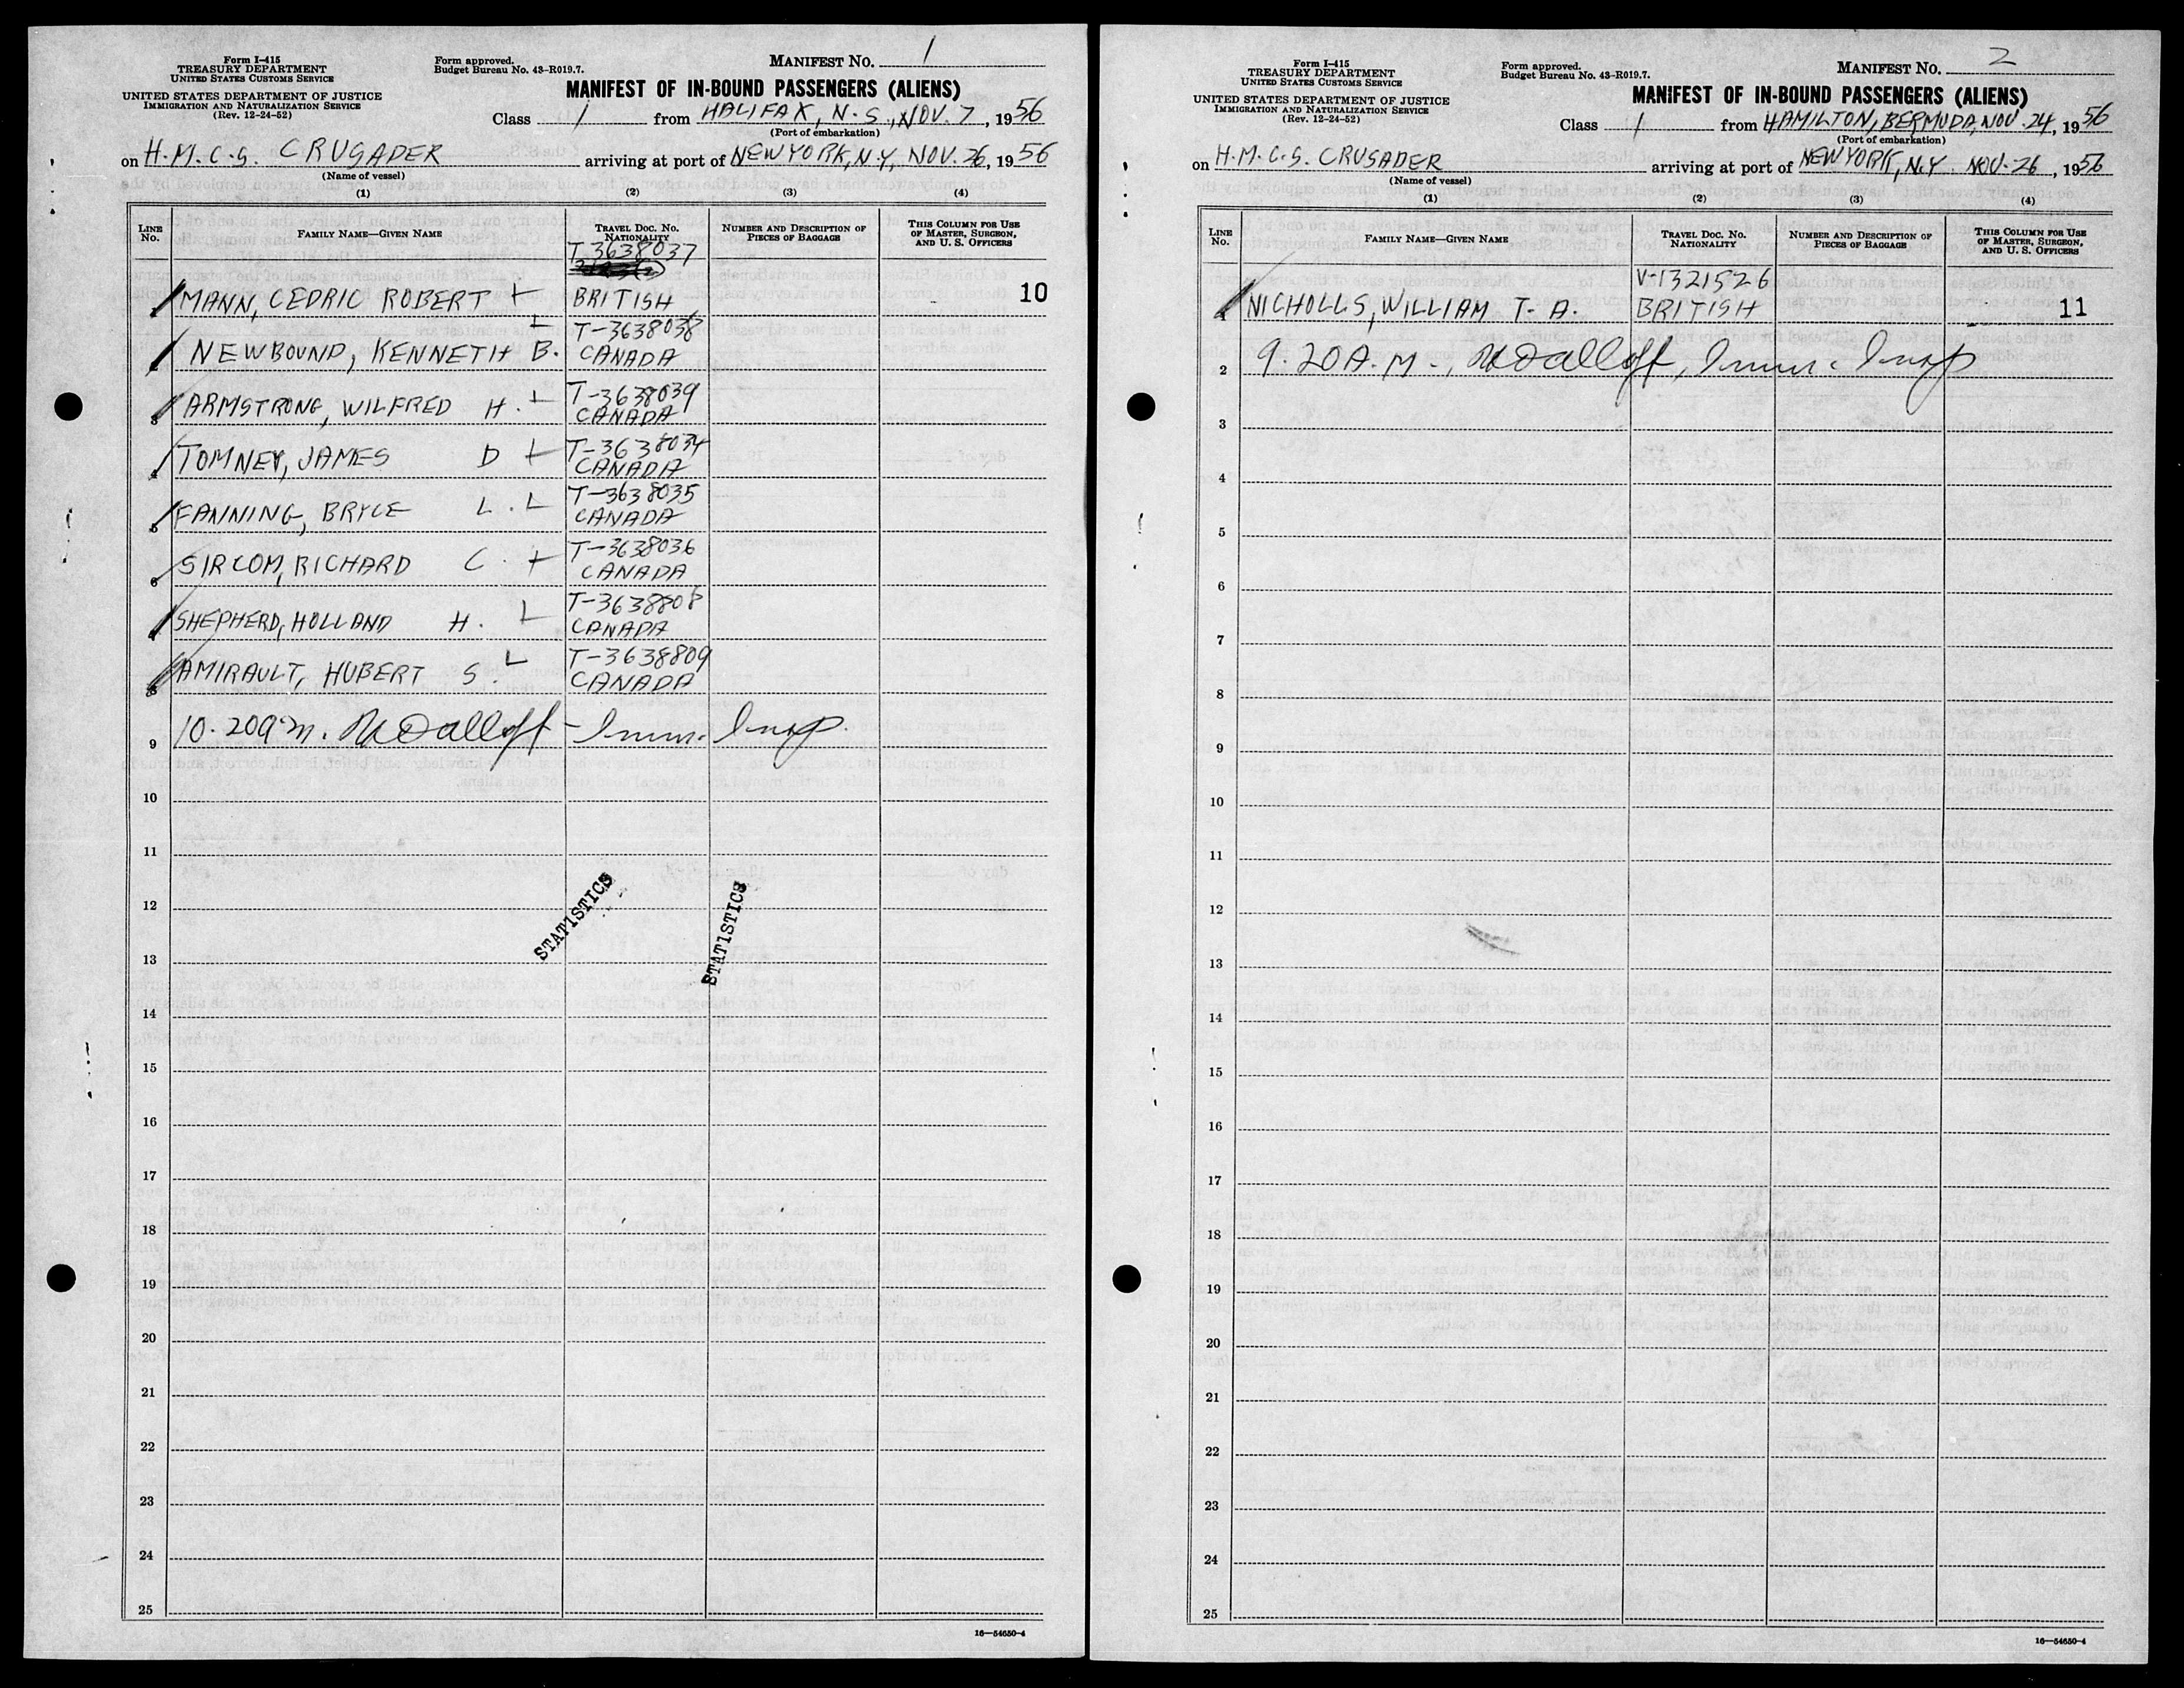 Form I-415
TREASURY DEPARTMENT
UNITED STATES CUSTOMS SERVICE
UNITED STATES DEPARTMENT OF JUSTICE
IMMIGRATION AND NATURALIZATION SERVICE
(Rev. 12-24-52)
Form approved.
Budget Bureau No. 43-R019.7.
MANIFEST No. 1
MANIFEST OF IN-BOUND PASSENGERS (ALIENS)
Class 1 from HALIFAX, N.S., NOV. 7, 1956
(Port of embarkation)
on H.M.C.S. CRUSADER arriving at port of NEW YORK, N.Y., NOV. 26, 1956
(Name of vessel)
(1) (2) (3) (4)
LINE No. FAMILY NAME—GIVEN NAME TRAVEL DOC. No. NATIONALITY NUMBER AND DESCRIPTION OF PIECES OF BAGGAGE THIS COLUMN FOR USE OF MASTER, SURGEON, AND U. S. OFFICERS
T-3638037
1 MANN, CEDRIC ROBERT BRITISH 10
T-3638038
2 NEWBOUND, KENNETH B. CANADA
T-3638039
3 ARMSTRONG, WILFRED H. CANADA
T-3638034
4 TOMNEY, JAMES D CANADA
T-3638035
5 FANNING, BRYCE L. CANADA
T-3638036
6 SIRCOM, RICHARD C. CANADA
T-3638808
7 SHEPHERD, HOLLAND H. CANADA
T-3638809
8 AMIRAULT, HUBERT S. CANADA
9 10.20am. - Imm. Insp.
10
11
12
13
STATISTICS STATISTICS
14
15
16
17
18
19
20
21
22
23
24
25
16—54650-4
Form I-415
TREASURY DEPARTMENT
UNITED STATES CUSTOMS SERVICE
UNITED STATES DEPARTMENT OF JUSTICE
IMMIGRATION AND NATURALIZATION SERVICE
(Rev. 12-24-52)
Form approved.
Budget Bureau No. 43-R019.7.
MANIFEST No. 2
MANIFEST OF IN-BOUND PASSENGERS (ALIENS)
Class 1 from HAMILTON, BERMUDA, NOV. 24, 1956
(Port of embarkation)
on H.M.C.S. CRUSADER arriving at port of NEW YORK, N.Y. NOV. 26, 1956
(Name of vessel)
(1) (2) (3) (4)
LINE No. FAMILY NAME—GIVEN NAME TRAVEL DOC. No. NATIONALITY NUMBER AND DESCRIPTION OF PIECES OF BAGGAGE THIS COLUMN FOR USE OF MASTER, SURGEON, AND U. S. OFFICERS
V-1321526
1 NICHOLLS, WILLIAM T. A. BRITISH 11
2 9.20A.M., Imm. Insp
3
4
5
6
7
8
9
10
11
12
13
14
15
16
17
18
19
20
21
22
23
24
25
16—54650-4